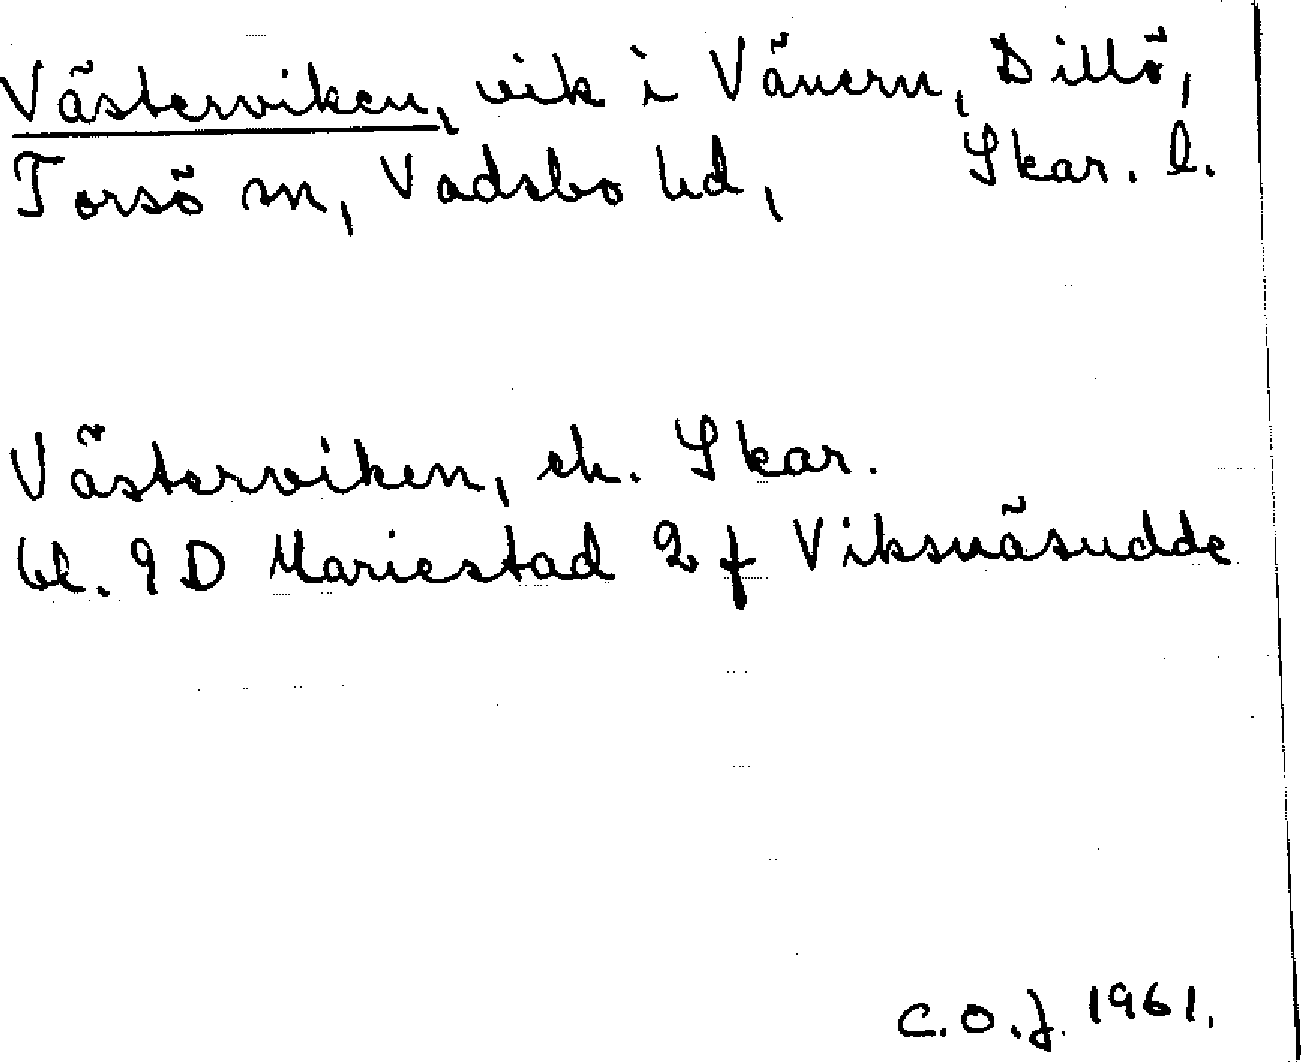 Västerviken, vik i Vänern, Dillö,
Torsö sn, Vadsbo hd, Skar. l.
Västerviken, ek. Skar.
bl. 9D Mariestad 2 f Viksnäsudde
C.O.J. 1961.